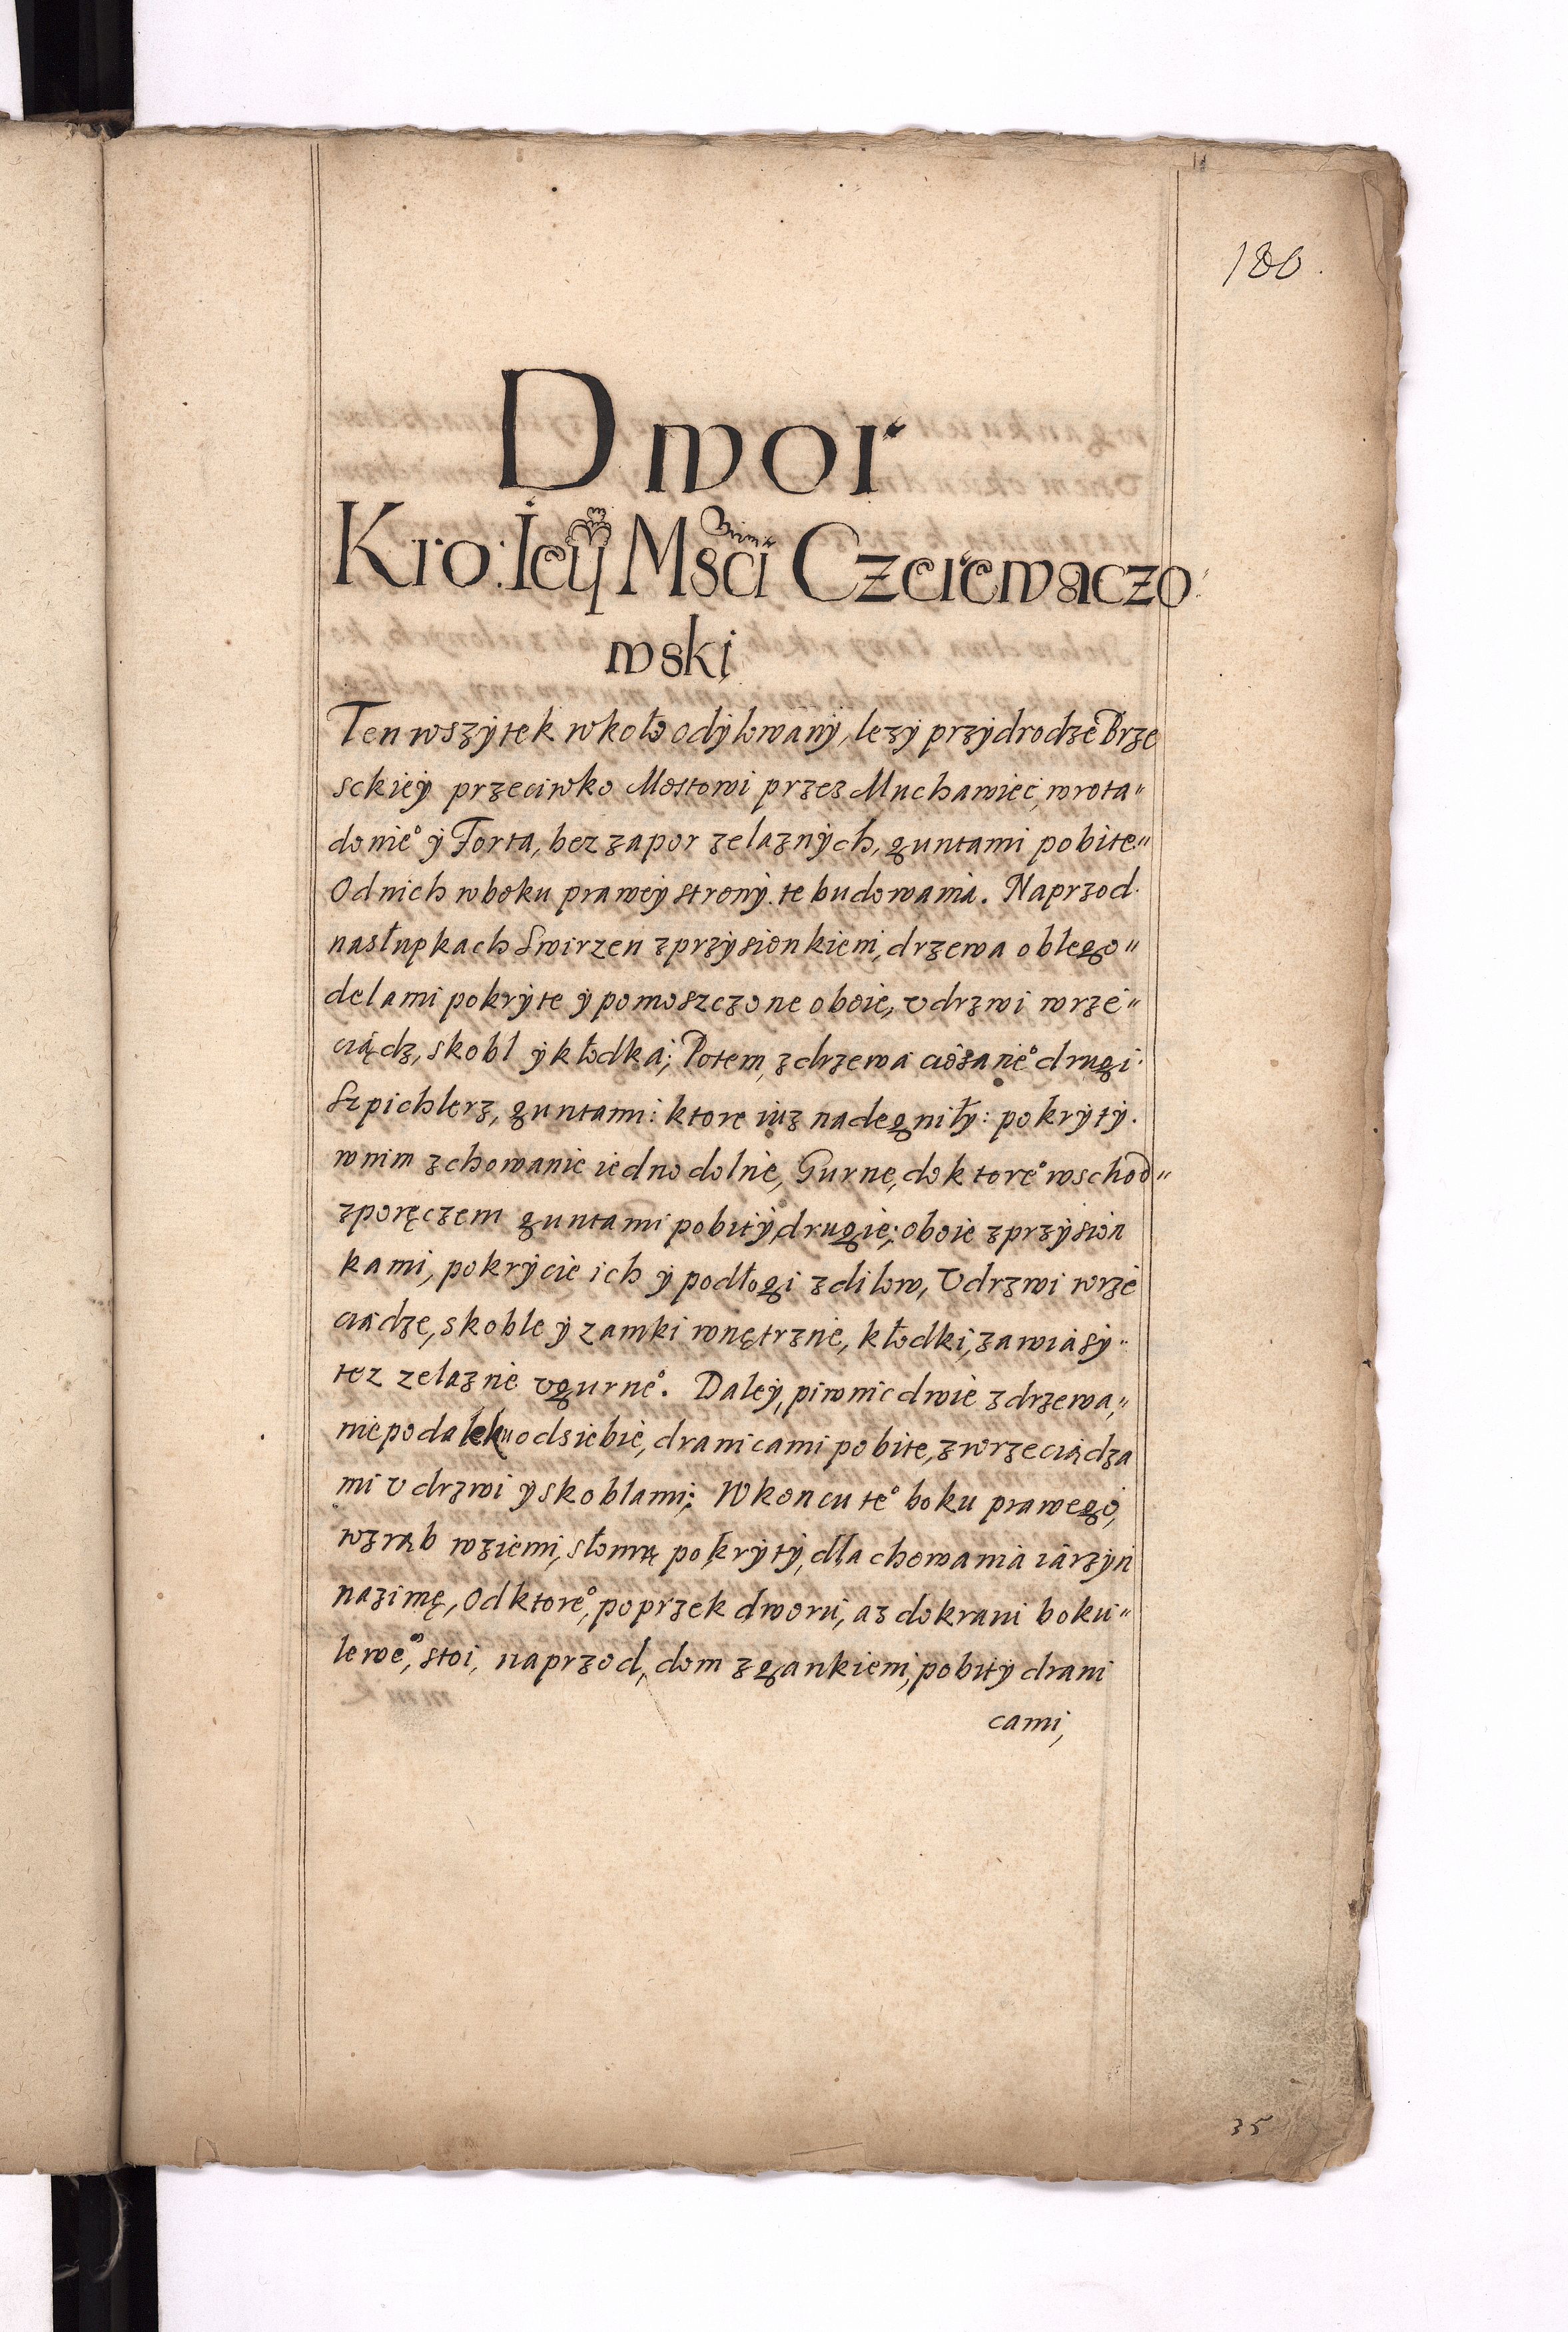 180.
Dwor
Kro: Ieÿ Msci Czerewaczo
wski
Ten wszÿtek wkoło odÿlowanÿ, lezÿ przÿdrodze Brze
sckieÿ przeciwko Mostowi przez Muchawiec, wrota"
donie° ÿ Forta, bez zapor zelaznÿch, guntami pobite"
Od nich wboku praweÿ stronÿ te budowania. Naprzod
nasłupkach Swirzen zprzÿsionkiem, drzewa oblego"
delami pokrÿte ÿ pomoszczone oboie, vdrzwi wrze"
ciądz, skobl ÿ kłodka; Potem, zdrzewa ciosanie° drugi
Szpichlerz, guntami: ktore iuz nadegniłÿ: pokrÿtÿ.
wnim zchowanie iedno dolne, Gurne, do ktore° wschod"
zporęczem guntami pobitÿ, drugie; oboie zprzÿsion
kami, pokrÿcie ich ÿ podłogi zdilow, Vdrzwi wrze
ciądze, skoble ÿ zamki wnętrzne, kłodki, zawiasÿ"
tez zelazne vgurne°. Daleÿ, piwnic dwie zdrzewa,"
niepodaleku odsiebie, dranicami pobite, zwrzeciądza
mi v drzwi ÿ skoblami; Wkoncu te° boku prawego,
wzrąb wziemi, słomą pokrÿtÿ, dla chowania iarzÿn
nazimę, Od ktore°, poprzek dworu, az dokrani boku"
lewe°, stoi, naprzod, dom zgankiem, pobitÿ drani
cami,
35